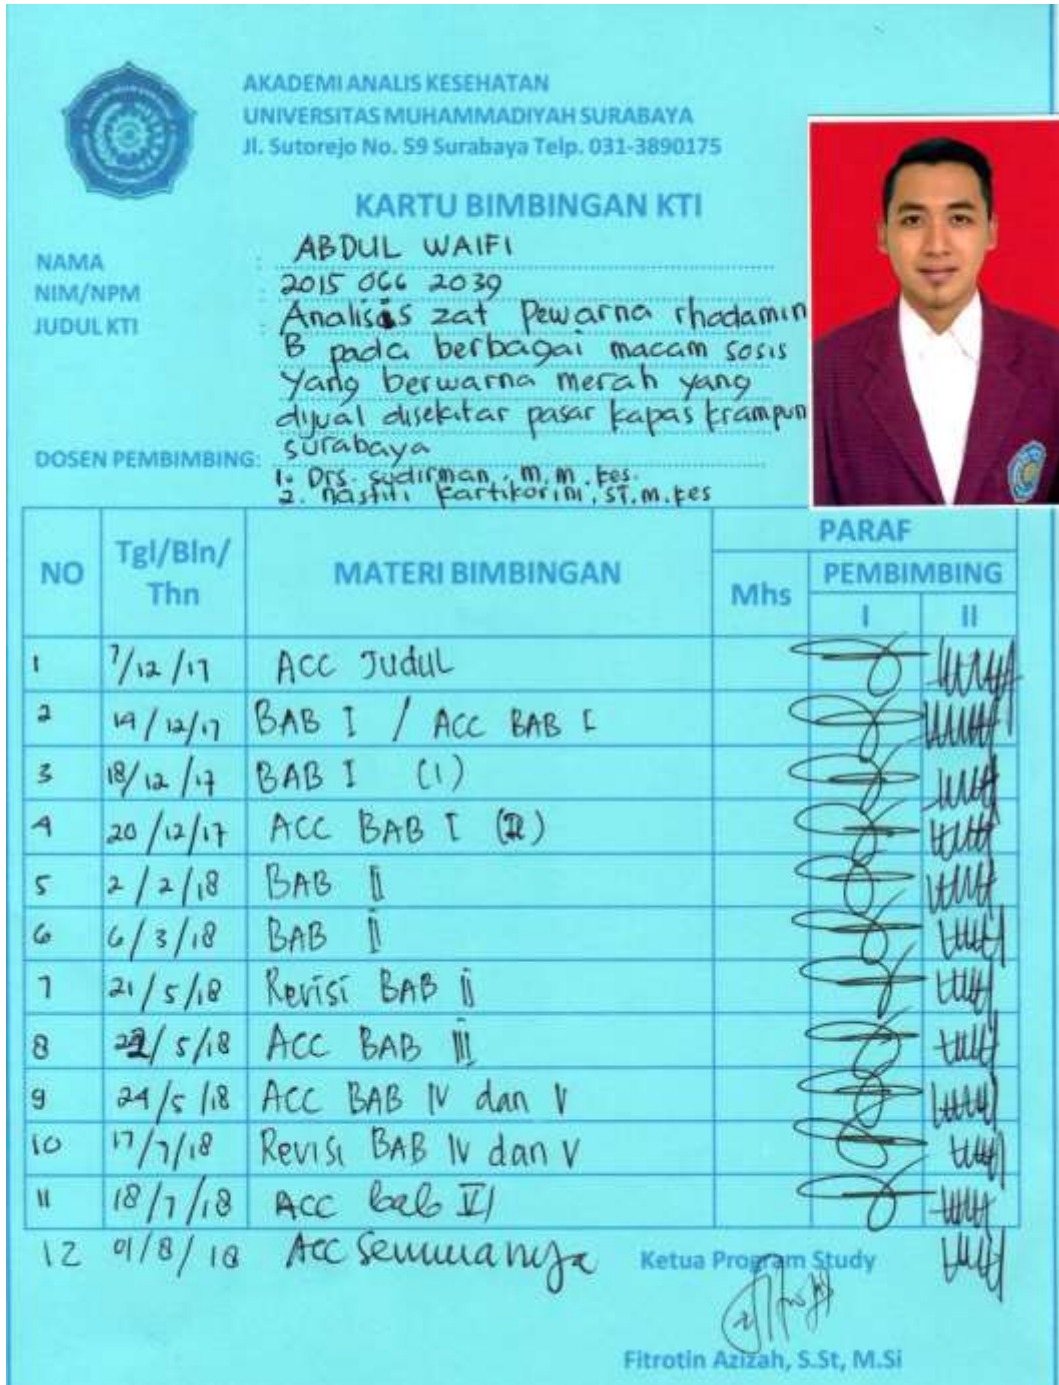 AKADEMI ANALIS KESEHATAN
UNIVERSITAS MUHAMMADIYAH SURABAYA
Jl. Sutorejo No. 59 Surabaya Telp. 031-3890175
KARTU BIMBINGAN KTI
NAMA : ABDUL WAIFI
NIM/NPM : 2015 066 2039
JUDUL KTI : Analisis zat Pewarna rhodamin
B pada berbagai macam sosis
Yang berwarna merah yang
dijual disekitar pasar kapas krampun
surabaya
DOSEN PEMBIMBING: 1. Drs. sudirman, m.m.kes.
2. nastiti kartikorini, ST.m.kes
NO Tgl/Bln/Thn MATERI BIMBINGAN PARAF
Mhs PEMBIMBING
I II
1 7/12/17 ACC Judul
2 14/12/17 BAB I / ACC BAB I
3 18/12/17 BAB I (1)
4 20/12/17 ACC BAB I (2)
5 2/2/18 BAB II
6 6/3/18 BAB II
7 21/5/18 Revisi BAB II
8 22/5/18 ACC BAB III
9 24/5/18 ACC BAB IV dan V
10 17/7/18 Revisi BAB IV dan V
11 18/7/18 ACC bab VI
12 01/8/18 Acc Semuanya
Ketua Program Study
Fitrotin Azizah, S.St, M.Si